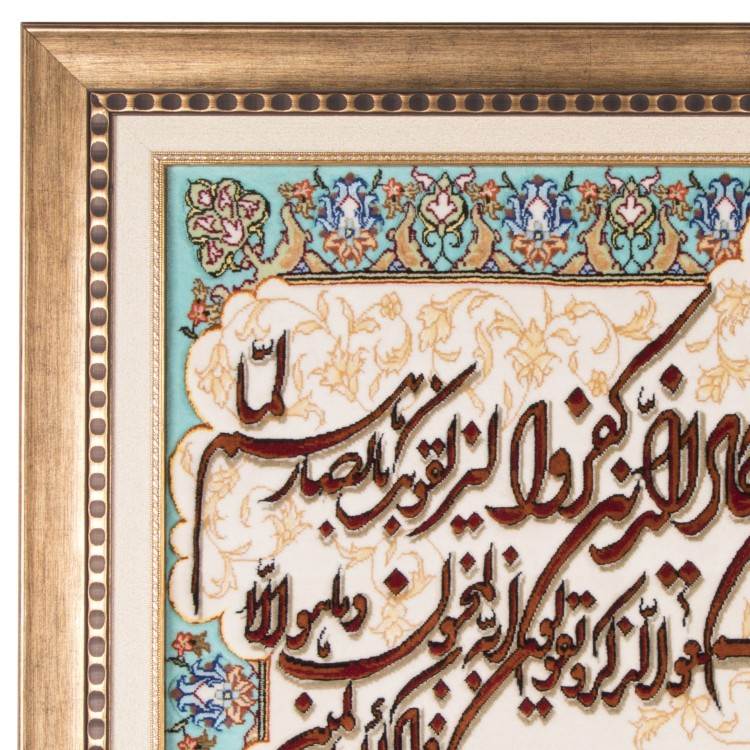 الذین کفروا لیزلقونک بابصارهم لما
سمعوا الذکر و یقولون انه لمجنون و ما هو الا